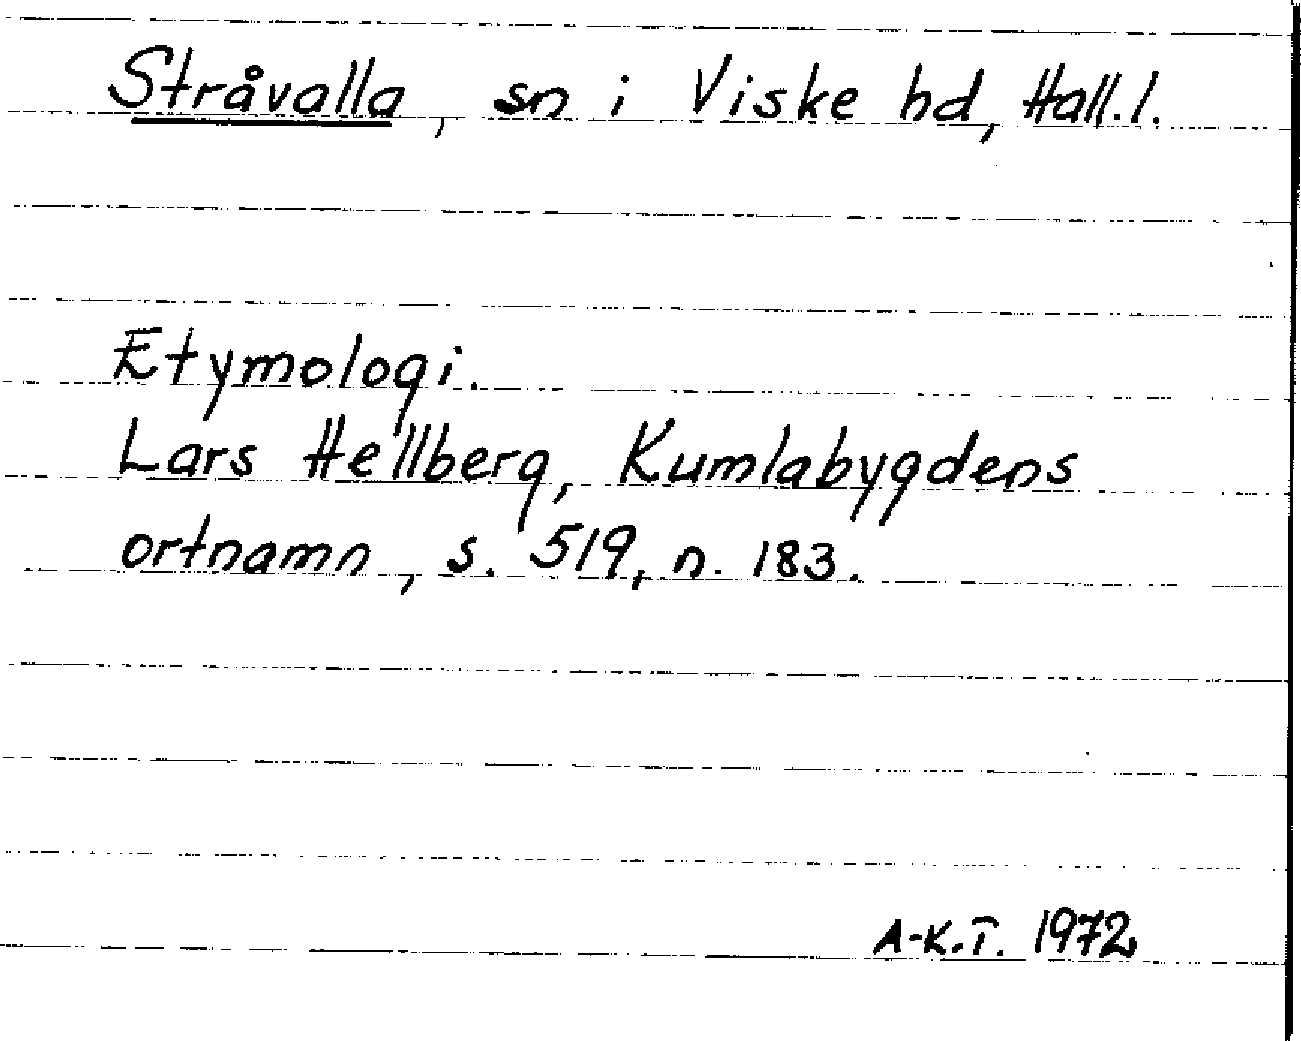 Stråvalla, sn i Viske hd, Hall.l.
Etymologi.
Lars Hellberg, Kumlabygdens
ortnamn, s. 519, n. 183.
A-K.T. 1972